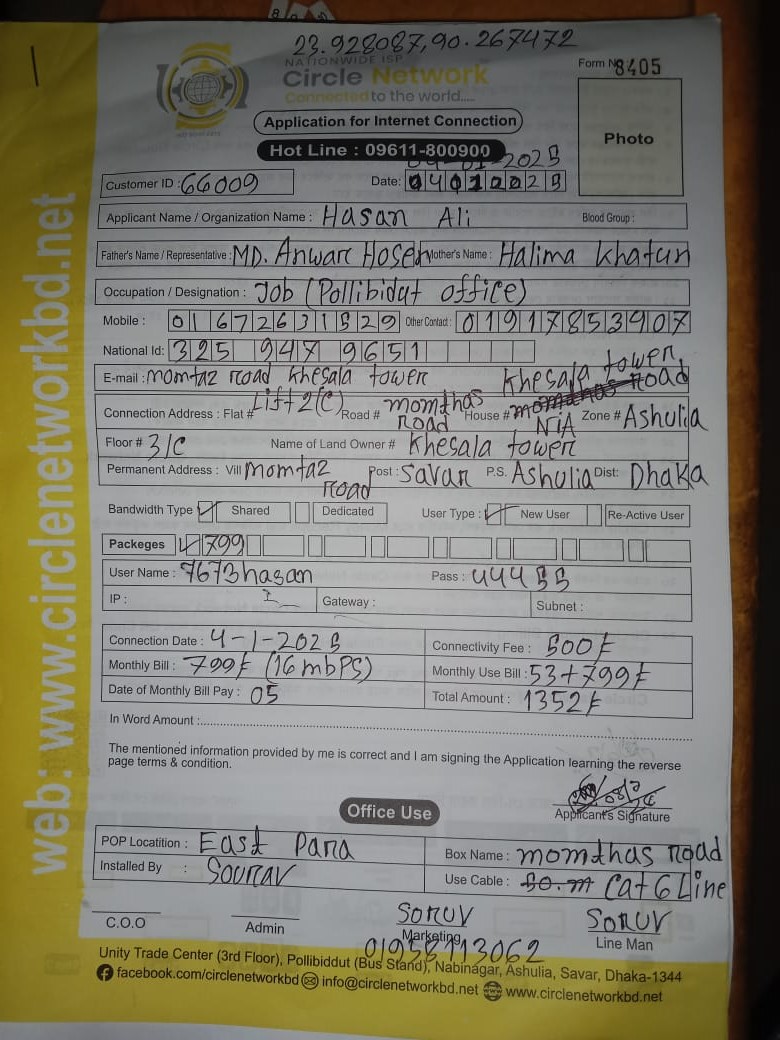 23.928087,90.267472
NATIONWIDE ISP
Circle Network
Connected to the world.....
Form No 8405
Application for Internet Connection
Photo
Hot Line : 09611-800900
04-01-2025
Customer ID : 66009 Date: 04012025
Applicant Name / Organization Name : Hasan Ali Blood Group :
Father's Name / Representative : MD. Anwar Hosen Mother's Name : Halima Khatun
Occupation / Designation : Job (Pollibidut office)
Mobile : 01672631529 Other Contact : 01917853907
National Id: 325 947 9651
E-mail : momtaz road Khesala tower Khesala tower
Connection Address : Flat # Lift 2(C) Road # momthas Road House # N/A Zone # Ashulia
Floor # 3/C Name of Land Owner # Khesala tower
Permanent Address : Vill momtaz Road Post : Savar P.S. Ashulia Dist: Dhaka
Bandwidth Type Shared Dedicated User Type : New User Re-Active User
Packeges 799
User Name : 7673hasan Pass : 44455
IP : Gateway : Subnet :
Connection Date : 4-1-2025 Connectivity Fee : 500৳
Monthly Bill : 799৳ (16 mbps) Monthly Use Bill : 53+799৳
Date of Monthly Bill Pay : 05 Total Amount : 1352৳
In Word Amount :
The mentioned information provided by me is correct and I am signing the Application learning the reverse
page terms & condition.
Applicant's Signature
Office Use
POP Locatition : East Para Box Name : momthas road
Installed By : Sourav Use Cable : 50.m Cat 6 Line
Soruv Soruv
C.O.O Admin Marketing Line Man
01958113062
Unity Trade Center (3rd Floor), Pollibiddut (Bus Stand), Nabinagar, Ashulia, Savar, Dhaka-1344
facebook.com/circlenetworkbd info@circlenetworkbd.net www.circlenetworkbd.net
web: www.circlenetworkbd.net